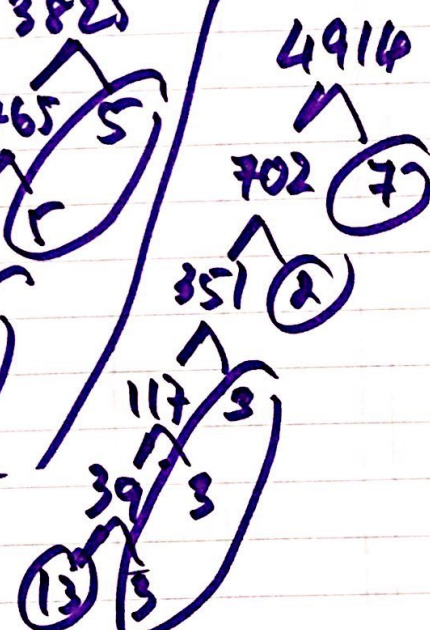 3825
65 5
5
4914
702 7
351 2
117 3
39 3
13 3